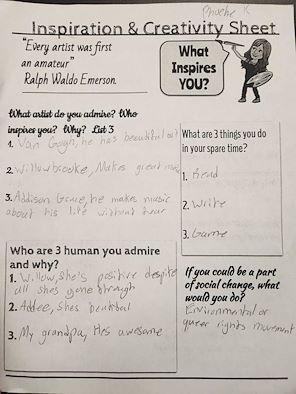 Phoebe K
Inspiration & Creativity Sheet
"Every artist was first
an amateur"
Ralph Waldo Emerson.
What
Inspires
YOU?
What artist do you admire? Who
inspires you? Why? List 3
1. Van Gogh, he has beautiful art
2. Willowbrooke, Makes great
3. Addison Grace, he makes music
about his life without fear
What are 3 things you do
in your spare time?
1. Read
2. Write
3. Game
Who are 3 human you admire
and why?
1. Willow, She's positive despite
all shes gone through
2. Addee, shes beutibal
3. My grandpa, Hes awesome
If you could be a part
of social change, what
would you do?
Environmental or
queer rights movement